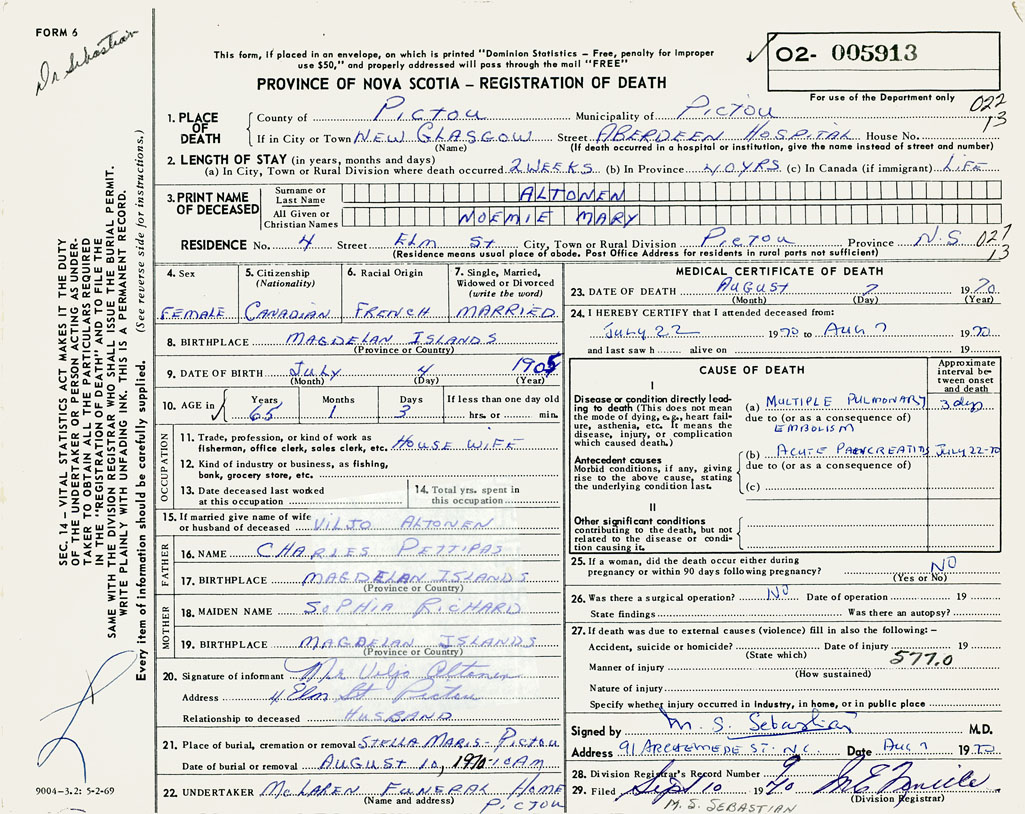 FORM 6
Dr Sebastian
This form, if placed in an envelope, on which is printed "Dominion Statistics – Free, penalty for improper
use $50," and properly addressed will pass through the mail "FREE"
✓ O2- 005913
PROVINCE OF NOVA SCOTIA – REGISTRATION OF DEATH
For use of the Department only
022
13
1. PLACE OF DEATH
County of PICTOU Municipality of PICTOU
If in City or Town NEW GLASGOW Street ABERDEEN HOSPITAL House No.
(Name) (If death occurred in a hospital or institution, give the name instead of street and number)
2. LENGTH OF STAY (in years, months and days)
(a) In City, Town or Rural Division where death occurred 2 WEEKS (b) In Province 40 YRS (c) In Canada (if immigrant) LIFE
3. PRINT NAME OF DECEASED
Surname or Last Name ALTONEN
All Given or Christian Names NOEMIE MARY
RESIDENCE No. 4 Street ELM St City, Town or Rural Division PICTOU Province N.S 027
13
(Residence means usual place of abode. Post Office Address for residents in rural parts not sufficient)
4. Sex FEMALE
5. Citizenship (Nationality) CANADIAN
6. Racial Origin FRENCH
7. Single, Married, Widowed or Divorced (write the word) MARRIED
8. BIRTHPLACE MAGDELAN ISLANDS
(Province or Country)
9. DATE OF BIRTH JULY 4 1905
(Month) (Day) (Year)
10. AGE in ✓ Years 65 Months 1 Days 3 If less than one day old hrs. or min.
OCCUPATION
11. Trade, profession, or kind of work as
fisherman, office clerk, sales clerk, etc. HOUSE WIFE
12. Kind of industry or business, as fishing,
bank, grocery store, etc.
13. Date deceased last worked
at this occupation
14. Total yrs. spent in
this occupation
15. If married give name of wife
or husband of deceased VILJO ALTONEN
FATHER
16. NAME CHARLES PETTIPAS
17. BIRTHPLACE MAGDELAN ISLANDS
(Province or Country)
MOTHER
18. MAIDEN NAME SOPHIA RICHARD
19. BIRTHPLACE MAGDELAN ISLANDS
(Province or Country)
20. Signature of informant Mr Viljo Altonen
Address 4 Elm St Pictou
Relationship to deceased HUSBAND
21. Place of burial, cremation or removal STELLA MARIS - PICTOU
Date of burial or removal AUGUST 10, 1970 - 10 AM
22. UNDERTAKER McLAREN FUNERAL HOME
(Name and address) PICTOU
MEDICAL CERTIFICATE OF DEATH
23. DATE OF DEATH AUGUST 7 1970
(Month) (Day) (Year)
24. I HEREBY CERTIFY that I attended deceased from:
July 22 1970 to Aug 7 1970
and last saw h alive on 19
CAUSE OF DEATH
Approximate interval between onset and death
I
Disease or condition directly leading to death (This does not
mean the mode of dying, e.g., heart failure, asthenia, etc. It means the
disease, injury, or complication which caused death.)
(a) MULTIPLE PULMONARY 3 days
due to (or as a consequence of)
EMBOLISM
Antecedent causes
Morbid conditions, if any, giving rise to the above cause, stating
the underlying condition last.
(b) ACUTE PANCREATITIS July 22-70
due to (or as a consequence of)
(c)
II
Other significant conditions
contributing to the death, but not related to the disease or condition causing it.
25. If a woman, did the death occur either during
pregnancy or within 90 days following pregnancy? NO
(Yes or No)
26. Was there a surgical operation? NO Date of operation 19
State findings Was there an autopsy?
27. If death was due to external causes (violence) fill in also the following:–
Accident, suicide or homicide? Date of injury 19
(State which) 577.0
Manner of injury
(How sustained)
Nature of injury
Specify whether injury occurred in industry, in home, or in public place
Signed by M. S. Sebastian M.D.
Address 91 ARCHEMEDE ST. N.G. Date Aug 7 1970
28. Division Registrar's Record Number 9/70
29. Filed Sept 10 1970
(Division Registrar)
M. S. SEBASTIAN
SEC. 14 – VITAL STATISTICS ACT MAKES IT THE DUTY
OF THE UNDERTAKER OR PERSON ACTING AS UNDER-
TAKER TO OBTAIN ALL THE PARTICULARS REQUIRED
IN THE "REGISTRATION OF DEATH" AND TO FILE THE
SAME WITH THE DIVISION REGISTRAR WHO SHALL ISSUE THE BURIAL PERMIT.
WRITE PLAINLY WITH UNFADING INK. THIS IS A PERMANENT RECORD.
Every item of information should be carefully supplied. (See reverse side for instructions.)
9004–3.2: 5-2-69